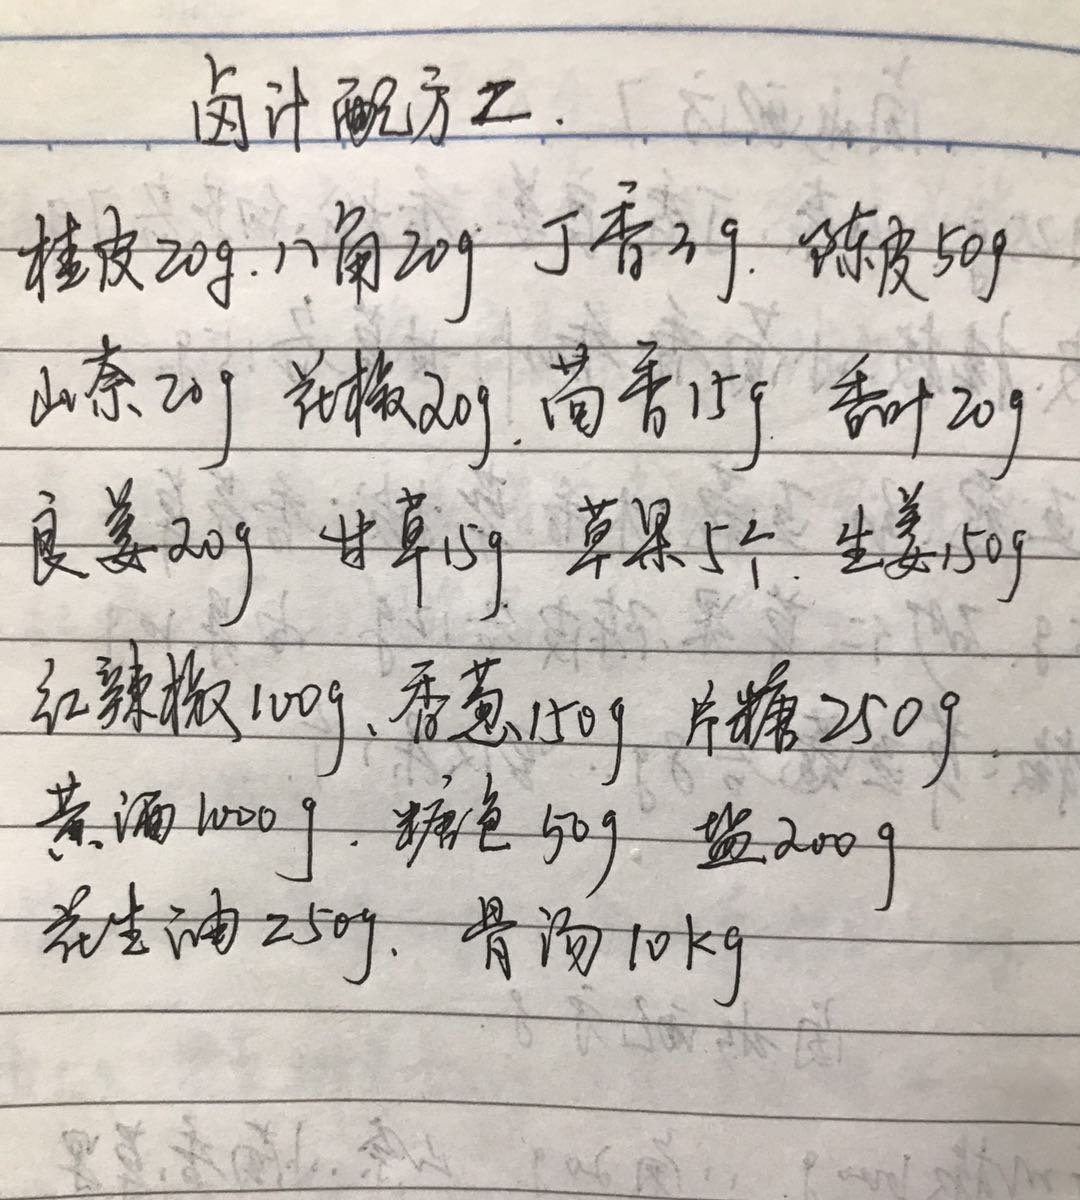 卤汁配方2.
桂皮20g.八角20g 丁香3g. 陈皮50g
山奈20g 花椒20g.茴香15g 香叶20g
良姜20g 甘草15g 草果5个. 生姜150g
红辣椒100g、香葱150g 片糖250g.
黄酒1000g. 糖色50g 盐200g
花生油250g. 骨汤10kg